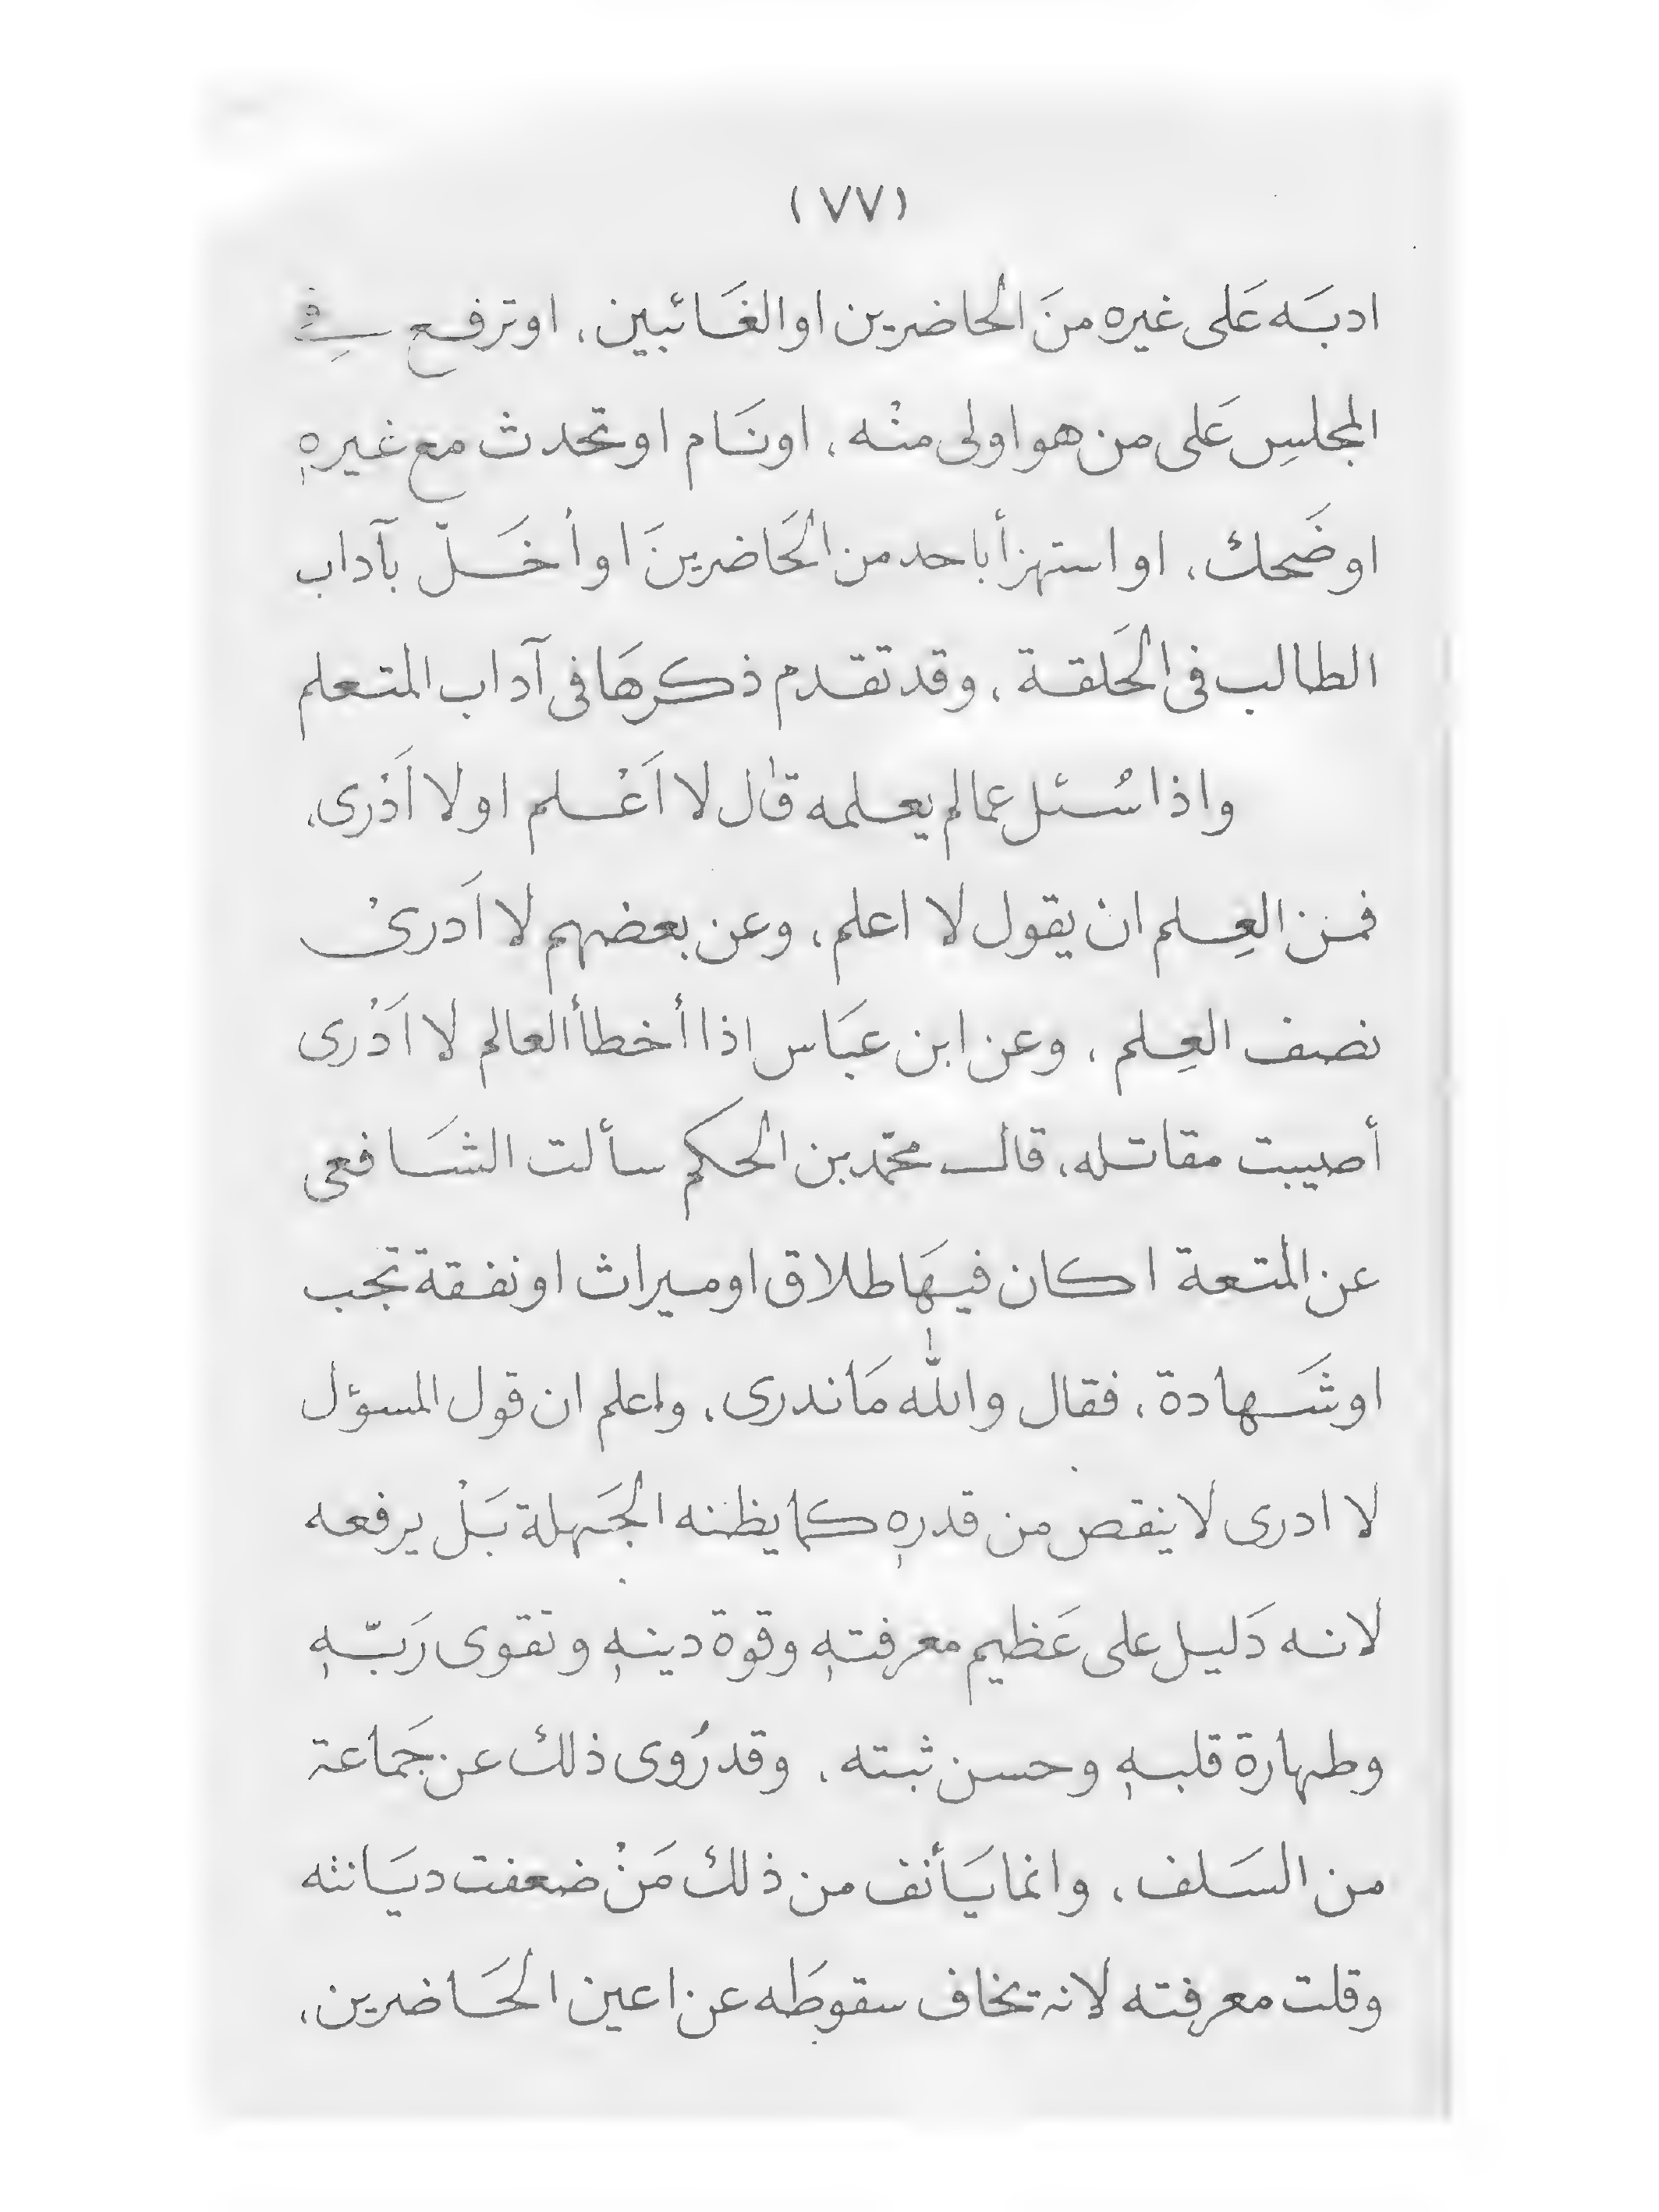 (٧٧)
ادبَه عَلى غيره منَ الحاضرين او الغَائبين، او ترفع في
المجلسِ عَلى من هو اولى منْه، او نَام او تحدث مع غيرهٖ
او ضَحك، او استهزأ باحد من الحَاضرينَ او أخَلّ بآداب
الطالب فى الحَلقة، وقد تقدم ذكرهَا فى آداب المتعلم
واذا سُئل عما لم يعلمه قال لا اَعْلم او لا اَدْرى،
فمن العِلم ان يقول لا اعلم، وعن بعضهم لا اَدرىْ
نصف العِلم، وعن ابن عبَاس اذا أخطأ العالم لا اَدْرى
أصيبت مقاتله، قال محمّد بن الحكم سألت الشَافعى
عن المتعة اكان فيهَا طلاق او ميراث او نفقة تجب
او شَهادة، فقال والله مَا ندرى، واعلم ان قول المسؤل
لا ادرى لا ينقص من قدرهٖ كما يظنه الجَهلة بَلْ يرفعه
لانه دَليل على عَظيم معرفتهٖ وقوة دينهٖ وتقوى رَبّهٖ
وطهارة قلبهٖ وحسن ثبته، وقد رُوى ذلك عن جَماعة
من السَلف، وانما يَأنف من ذلك مَنْ ضعفت ديَانته
وقلت معرفته لانه يخاف سقوطَه عن اعين الحَاضرين،